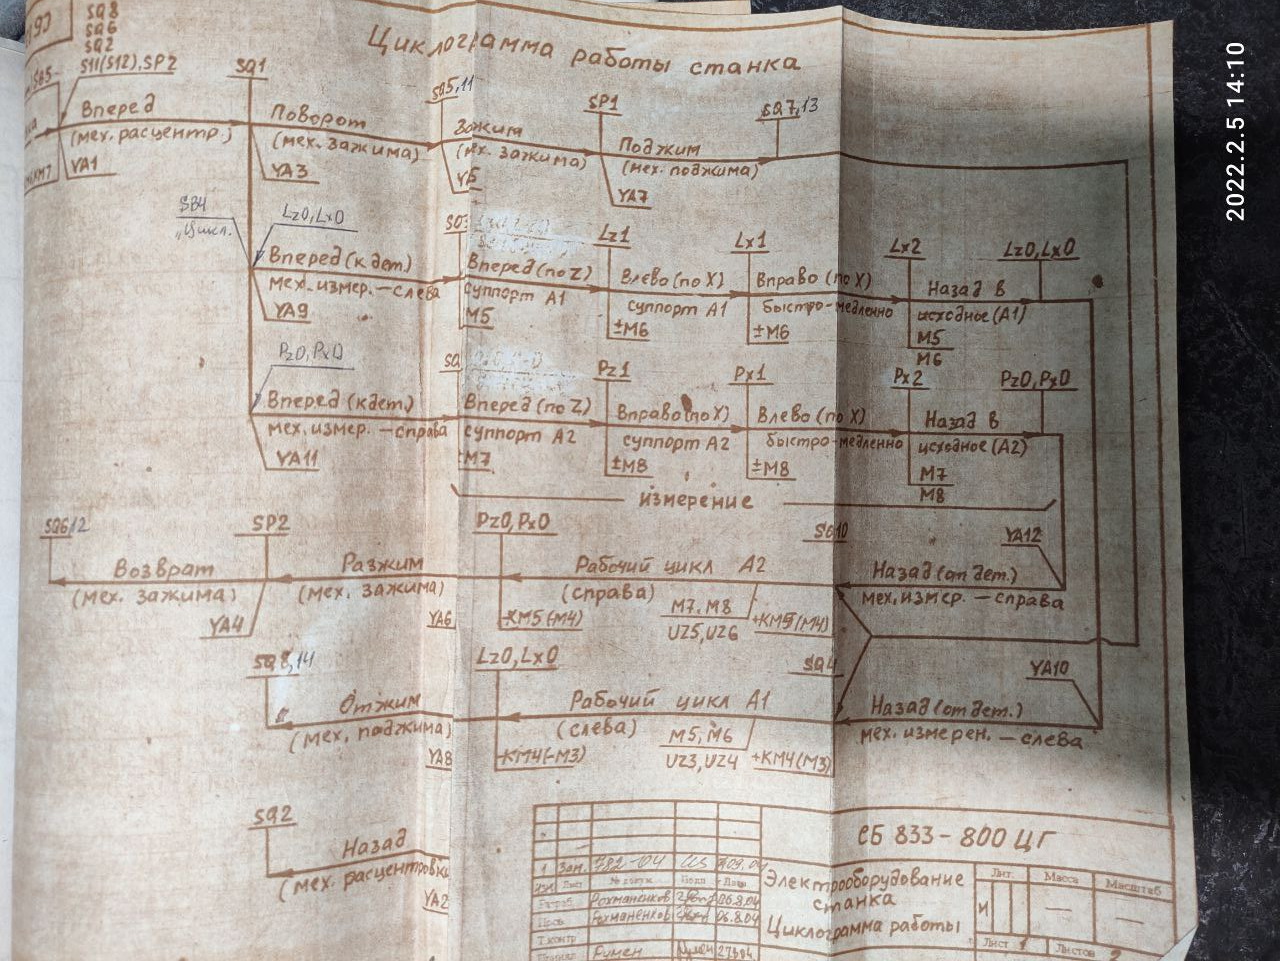 SQ8
SQ6
SQ2
S11(S12).SP2
SQ1
Циклограмма работы станка
SQ5,11
SP1
SQ7,13
Вперед
(мех. расцентр.)
YA1
Поворот
(мех. зажима)
YA3
Зажим
(мех. зажима)
Поджим
(мех. поджима)
YA7
SB4
"Цикл."
Lz0, Lx0
Вперед (к дет.)
мех. измер. - слева
YA9
Вперед (по Z)
суппорт А1
М5
Lz1
Влево (по Х)
суппорт А1
±М6
Lx1
Вправо (по Х)
быстро-медленно
±М6
Lx2
Назад в
исходное (А1)
М5
М6
Lz0, Lx0
Pz0, Px0
Вперед (к дет.)
мех. измер. - справа
YA11
Вперед (по Z)
суппорт А2
М7
Pz1
Вправо (по Х)
суппорт А2
±М8
Px1
Влево (по Х)
быстро-медленно
±М8
Px2
Назад в
исходное (А2)
М7
М8
Pz0, Px0
измерение
SQ6,12
Возврат
(мех. зажима)
SP2
YA4
Разжим
(мех. зажима)
YA6
Pz0, Px0
Рабочий цикл А2
(справа)
КМ5(-М4)
М7, М8
UZ5, UZ6
+КМ5(М4)
YA12
Назад (от дет.)
мех. измер. - справа
SQ8,14
Отжим
(мех. поджима)
YA8
Lz0, Lx0
Рабочий цикл А1
(слева)
КМ4(-М3)
М5, М6
UZ3, UZ4
+КМ4(М3)
SQ4
YA10
Назад (от дет.)
мех. измерен. - слева
SQ2
Назад
(мех. расцентровки
YA2
СБ 833-800 ЦГ
1 Зам. 782-04
Рохманенков 06.8.04
Рохманенков 06.8.04
Т.контр
Электрооборудование
станка
Циклограмма работы
Лит. Масса Масштаб
И
Лист 1 Листов
2022.2.5 14:10